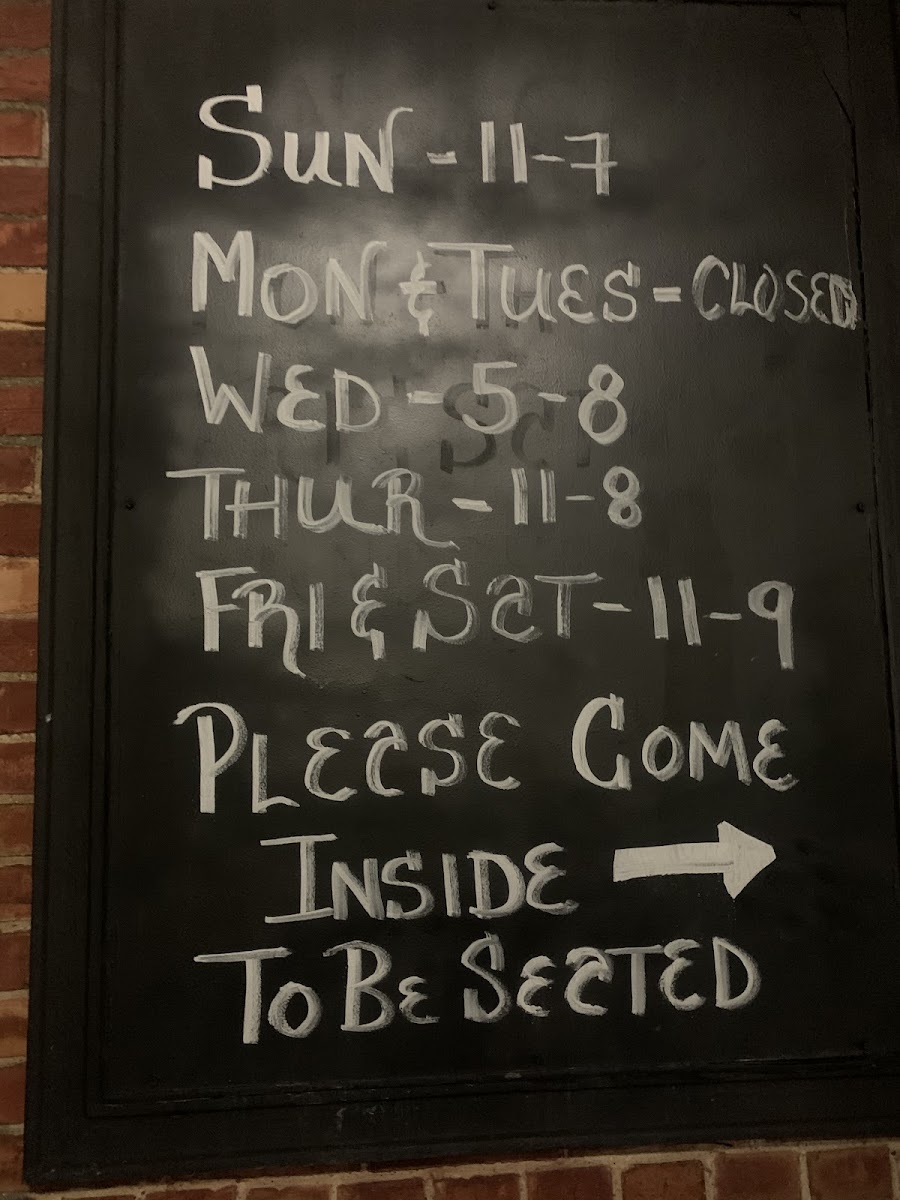 SUN - 11-7
MON & TUES - CLOSED
WED - 5-8
THUR - 11-8
FRI & SAT - 11-9
PLEASE COME
INSIDE →
TO BE SEATED